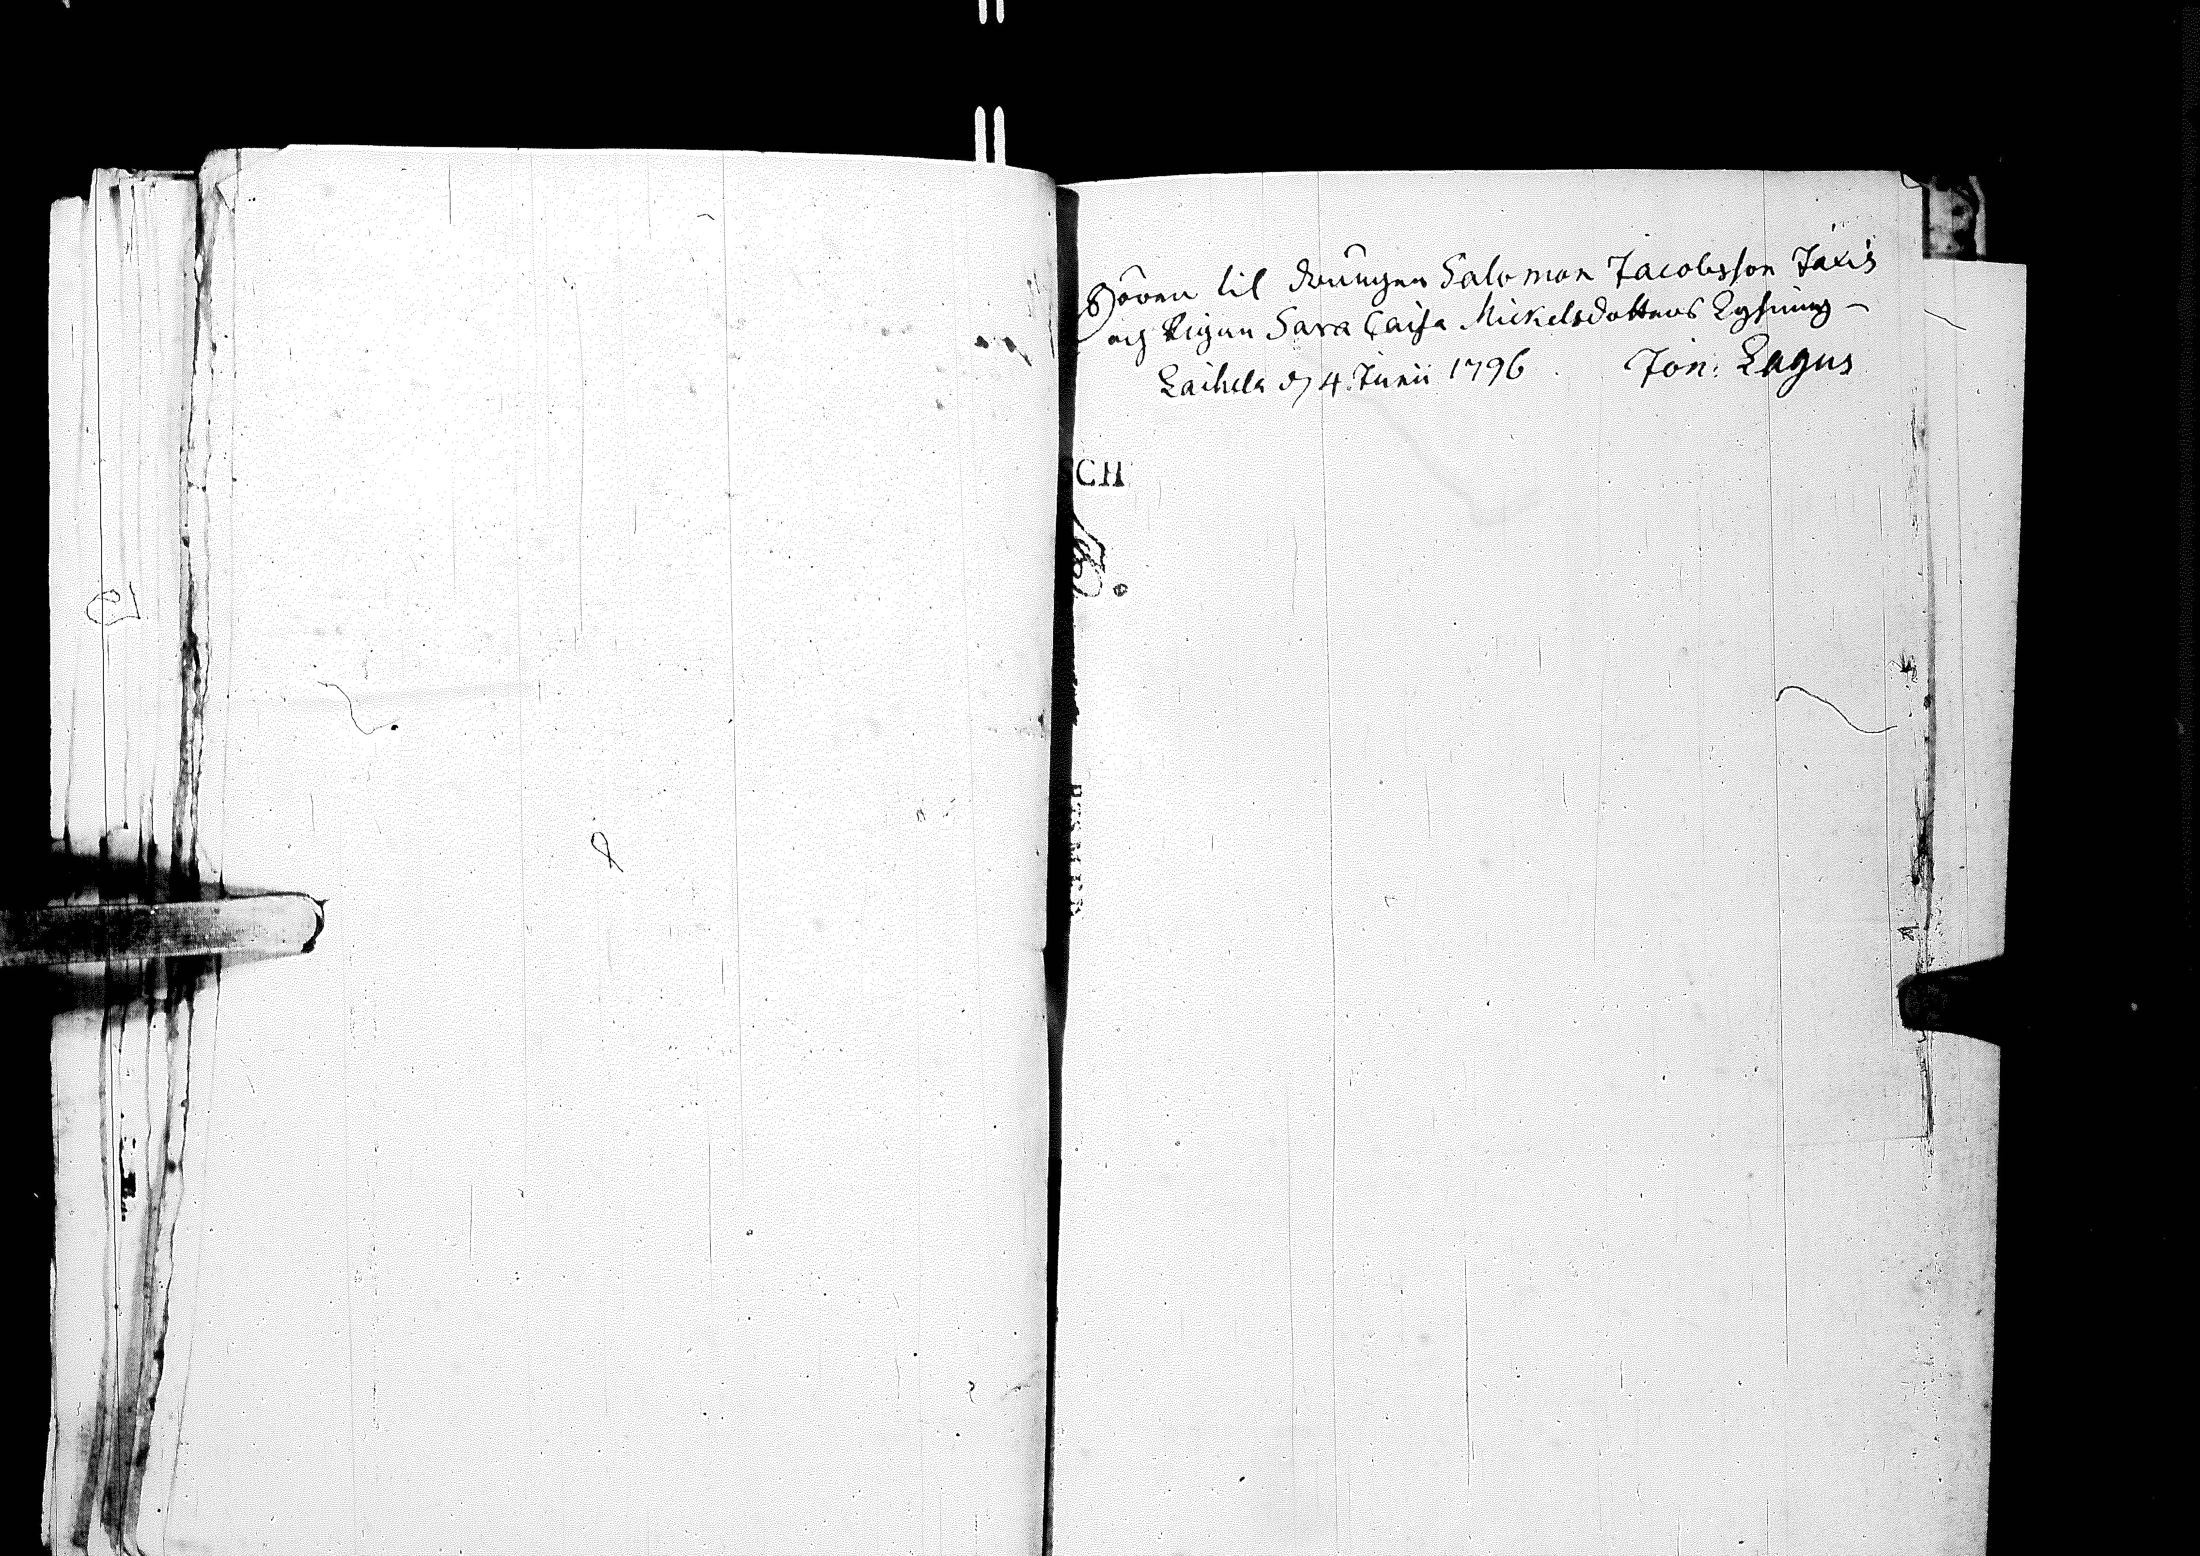 Hörer til drängen Salomon Jacobsson Taxis
och Pigan Sara Caisa Mickelsdotters Lysning –
Laihela d 4. Junii 1796. Jon: Lagus
CH